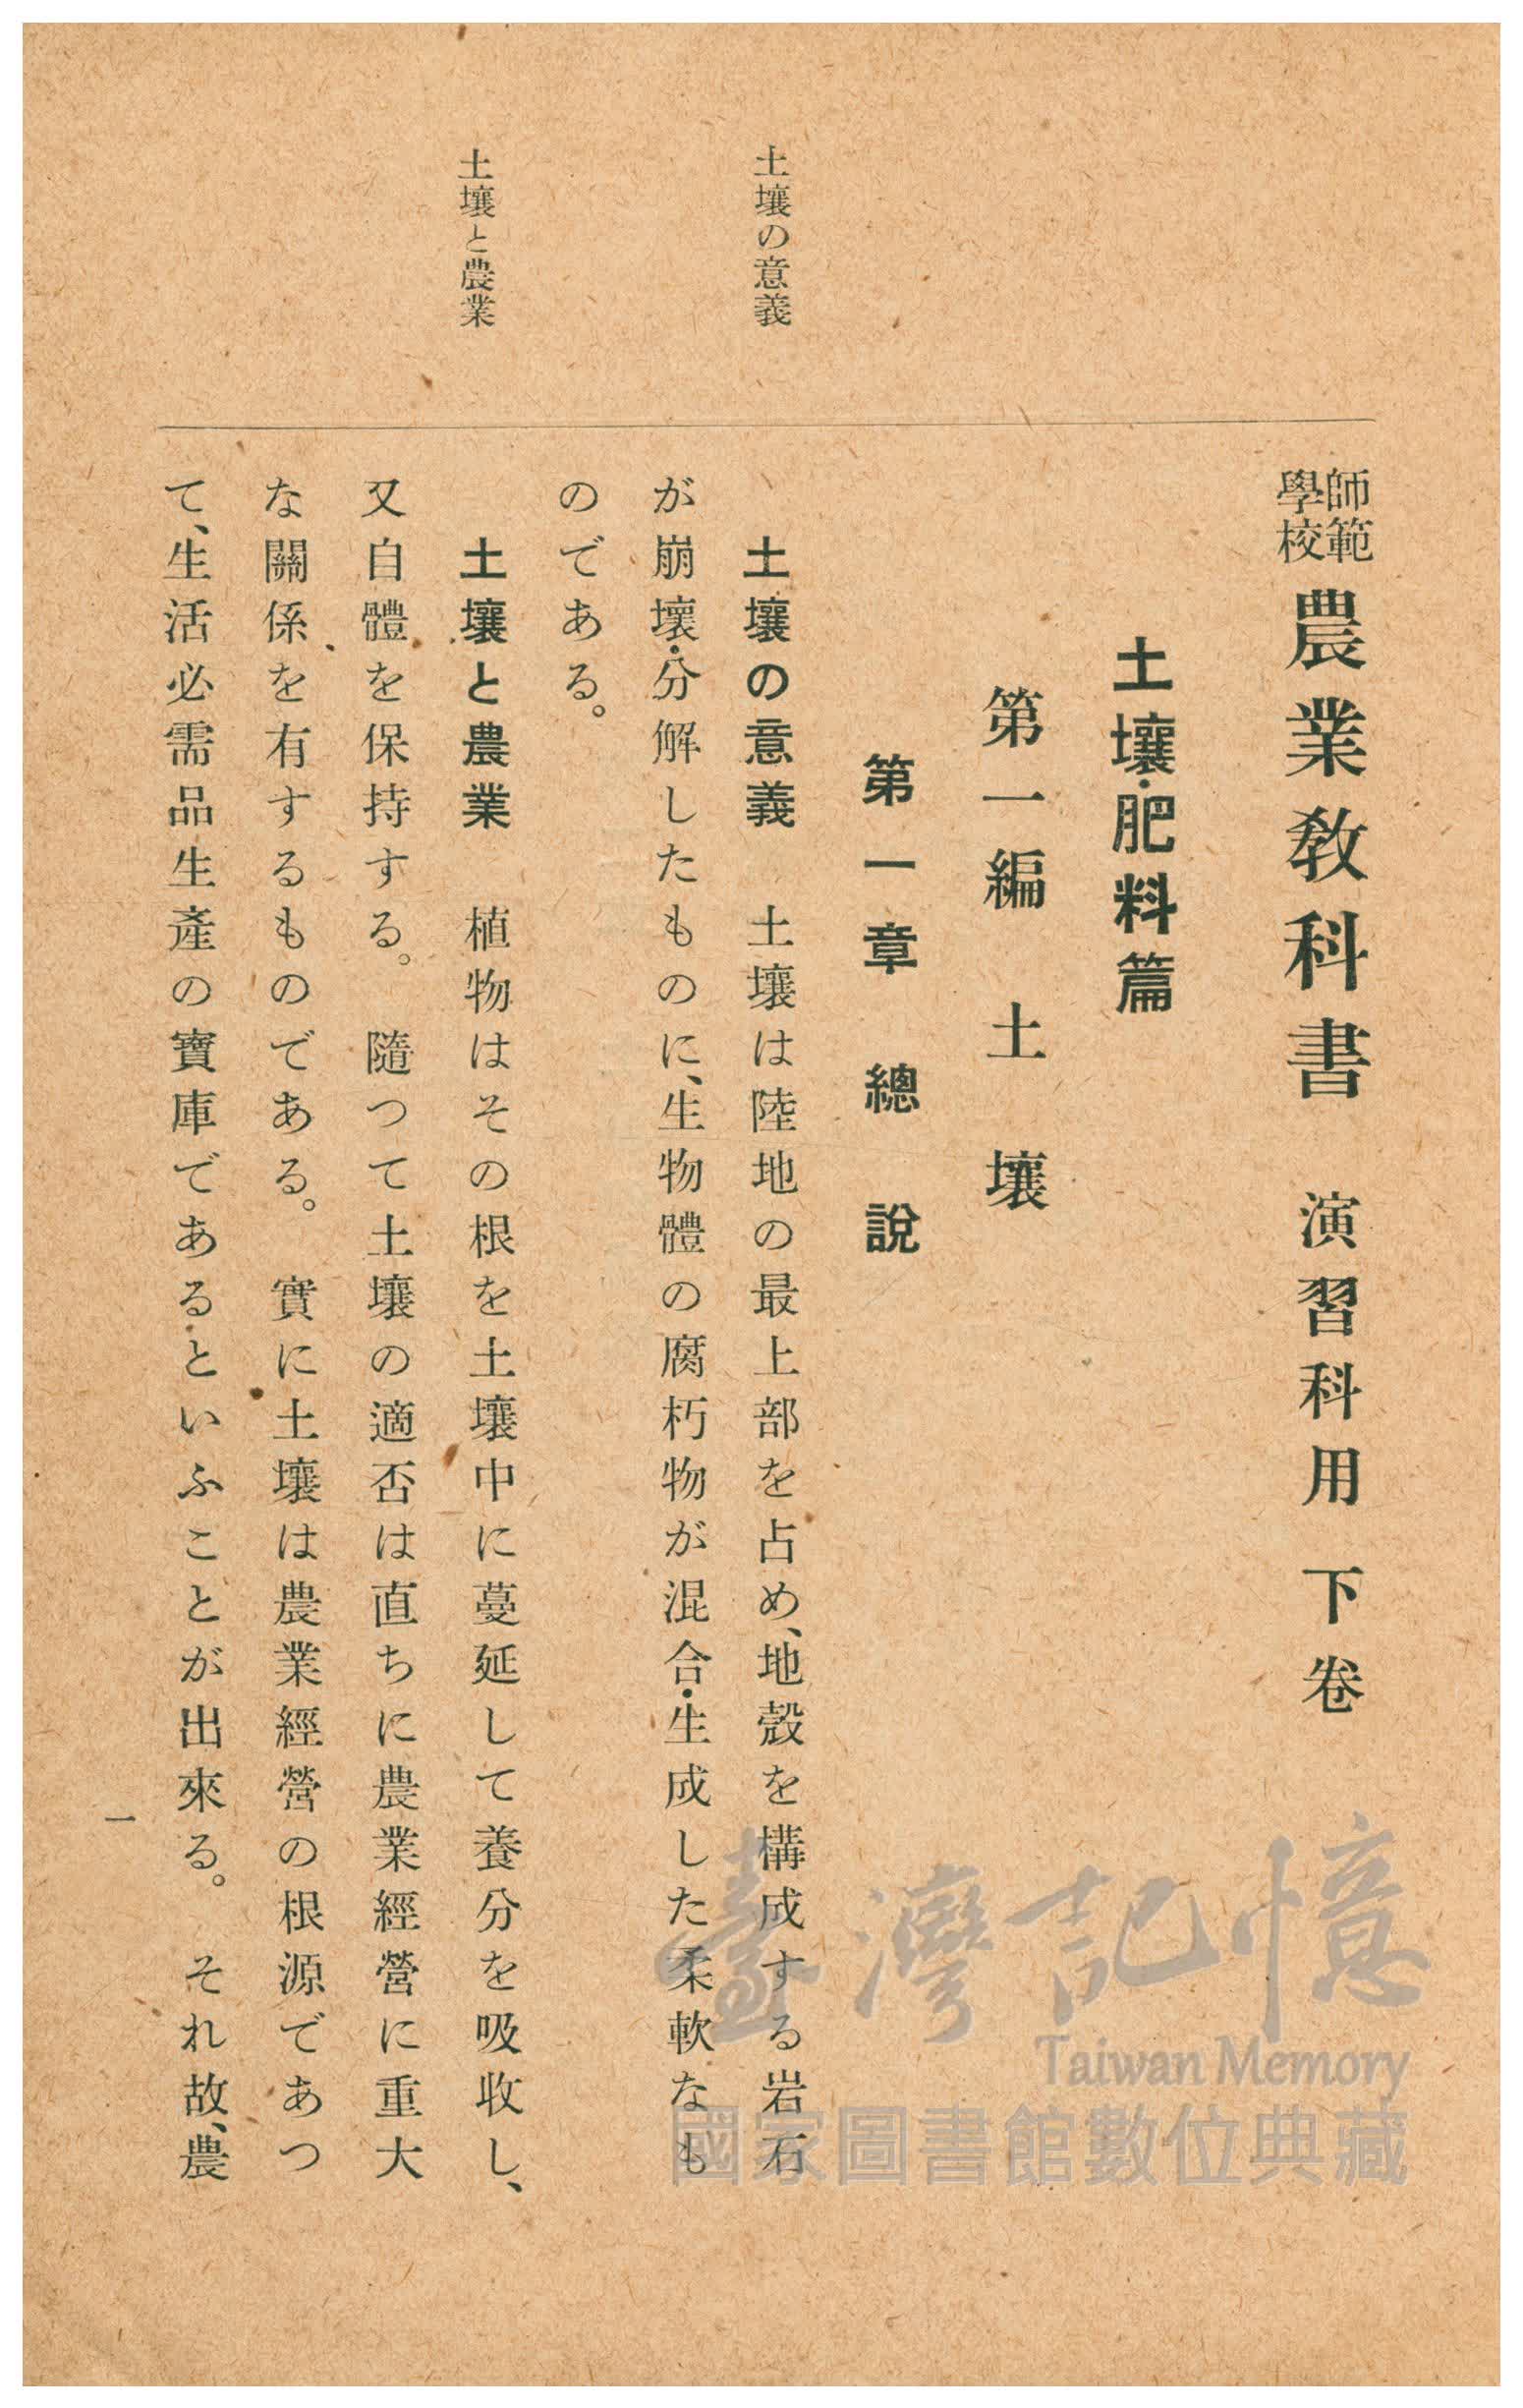 師範學校 農業敎科書 演習科用 下卷
土壤・肥料篇
第一編 土壤
第一章 總說
土壤の意義
土壤の意義 土壤は陸地の最上部を占め、地殼を構成する岩石
が崩壞・分解したものに、生物體の腐朽物が混合・生成した柔軟なも
のである。
土壤と農業
土壤と農業 植物はその根を土壤中に蔓延して養分を吸收し、
又自體を保持する。隨つて土壤の適否は直ちに農業經營に重大
な關係を有するものである。實に土壤は農業經營の根源であつ
て、生活必需品生產の寶庫であるといふことが出來る。それ故、農
一
臺灣記憶
Taiwan Memory
國家圖書館數位典藏